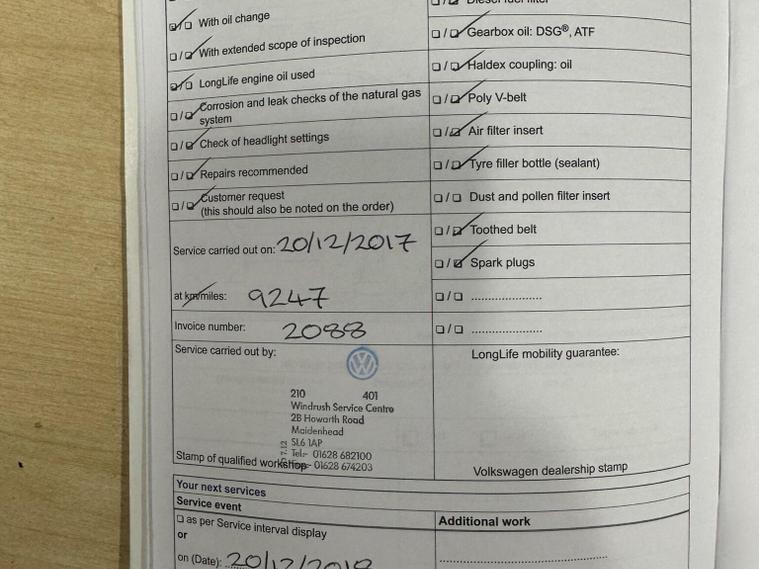 Diesel fuel filter
With oil change
With extended scope of inspection
LongLife engine oil used
Corrosion and leak checks of the natural gas
system
Check of headlight settings
Repairs recommended
Customer request
(this should also be noted on the order)
Service carried out on: 20/12/2017
at km/miles: 9247
Invoice number: 2088
Service carried out by:
210 401
Windrush Service Centre
2B Howarth Road
Maidenhead
SL6 1AP
Tel:- 01628 682100
01628 674203
Stamp of qualified workshop
Gearbox oil: DSG®, ATF
Haldex coupling: oil
Poly V-belt
Air filter insert
Tyre filler bottle (sealant)
Dust and pollen filter insert
Toothed belt
Spark plugs
LongLife mobility guarantee:
Volkswagen dealership stamp
Your next services
Service event
as per Service interval display
or
on (Date): 20/12/2018
Additional work